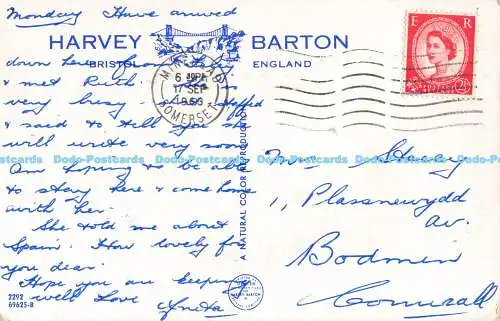 Monday Have arrived
down here
& met Ruth. is
very busy
& said to tell you she
will write very soon
Am hoping to be able
to stay here & come home
with her.
She told me about
Spain. How lovely for
you dear.
Hope you are keeping
well Love
HARVEY BARTON
BRISTOL ENGLAND
MINEHEAD
6 PM
17 SEP
SOMERSET
E R
A NATURAL COLOR REPRODUCTION
1, Plassnewydd
av.
Bodmin
Cornwall
HARVEY BARTON
2292
69625-B
Dodo-Postcards Dodo-Postcards Dodo-Postcards Dodo-Postcards